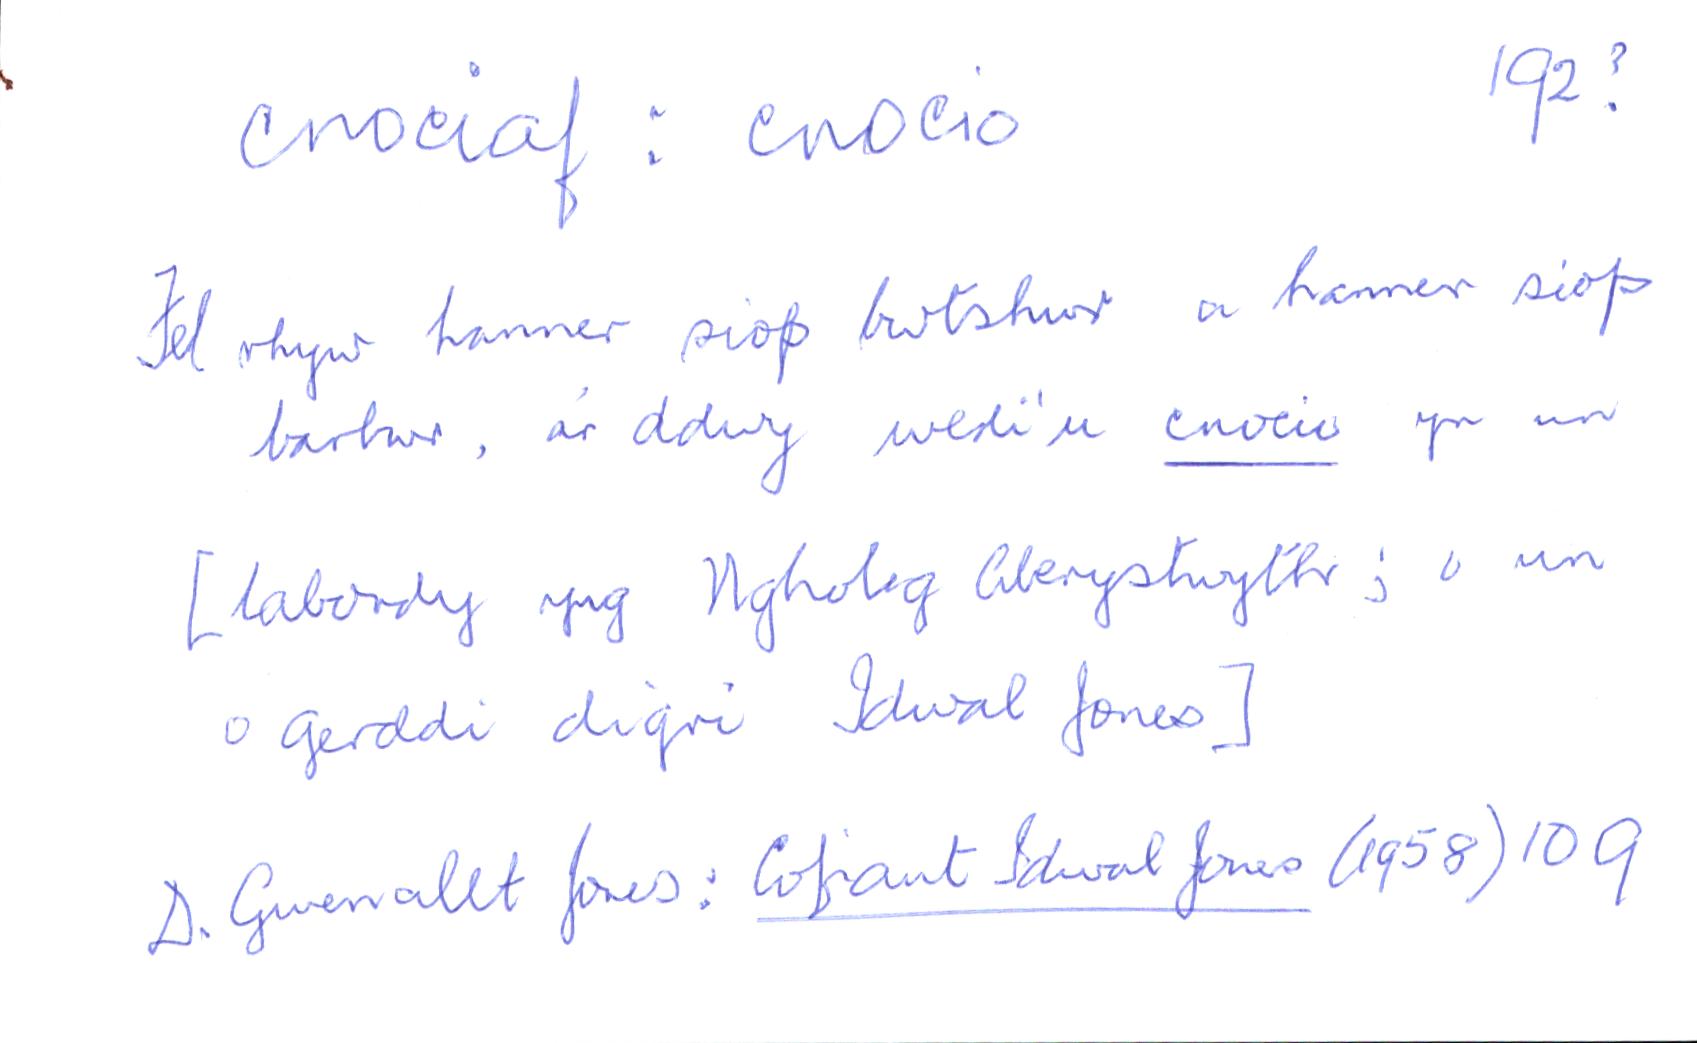 192?
cnociaf : cnocio
Fel rhyw hanner siop bwtshwr a hanner siop
barbwr, a'r ddwy wedi'u cnocio yn un
[labordy yng Ngholeg Aberystwyth; o un
o gerddi digri Idwal Jones]
D. Gwenallt Jones: Cofiant Idwal Jones (1958) 109